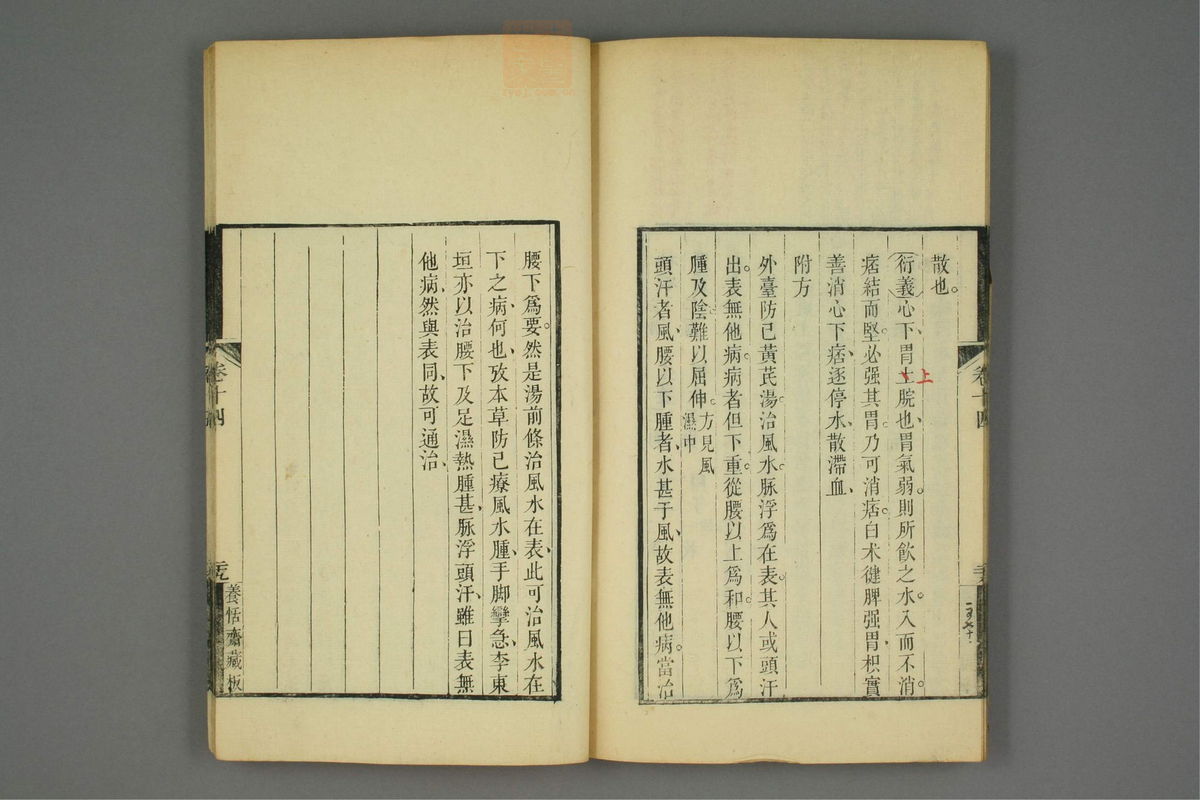 散也。
衍義心下胃土脘也、胃氣弱。則所飲之水。入而不消。
上
痞結而堅。必强其胃。乃可消痞。白术健脾强胃、枳實
善消心下痞、逐停水、散滯血、
附方
外臺防已黃芪湯。治風水。脉浮爲在表。其人或頭汗
出。表無他病。病者但下重。從腰以上爲和。腰以下爲
腫及陰。難以屈伸。方見風
濕中
頭汗者風、腰以下腫者、水甚于風、故表無他病。當治
卷十四
腰下爲要。然是湯前條治風水在表、此可治風水在
下之病、何也、攷本草防已療風水腫、手脚攣急、李東
垣亦以治腰下及足濕熱腫甚、脉浮頭汗、雖曰表無
他病、然與表同、故可通治、
卷十四
養恬齋藏板